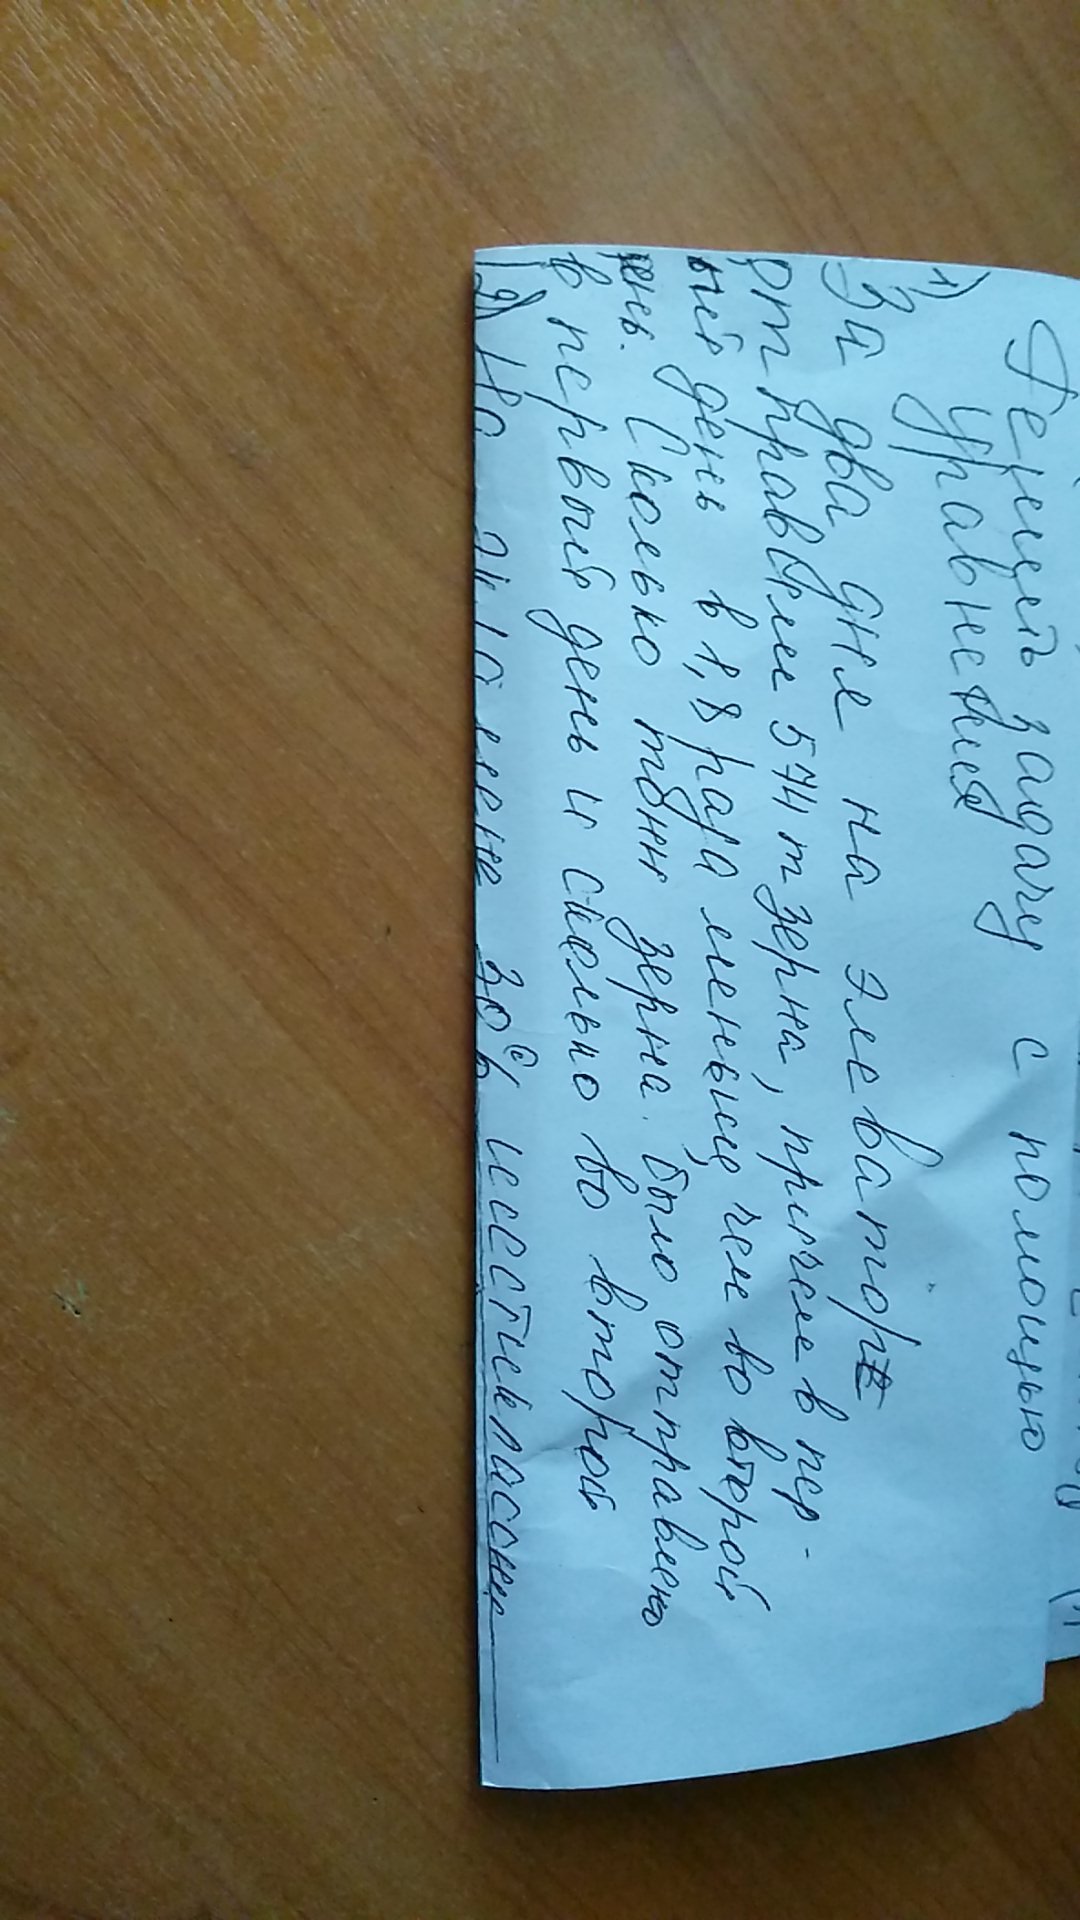 Решить задачу с помощью
уравнения
1)
За два дня на элеватор
отправили 574 т зерна, причем в пер-
вый день в 1,8 раза меньше, чем во второй
день. Сколько тонн зерна было отправлено
в первый день и сколько во второй
2) На шестиклассни